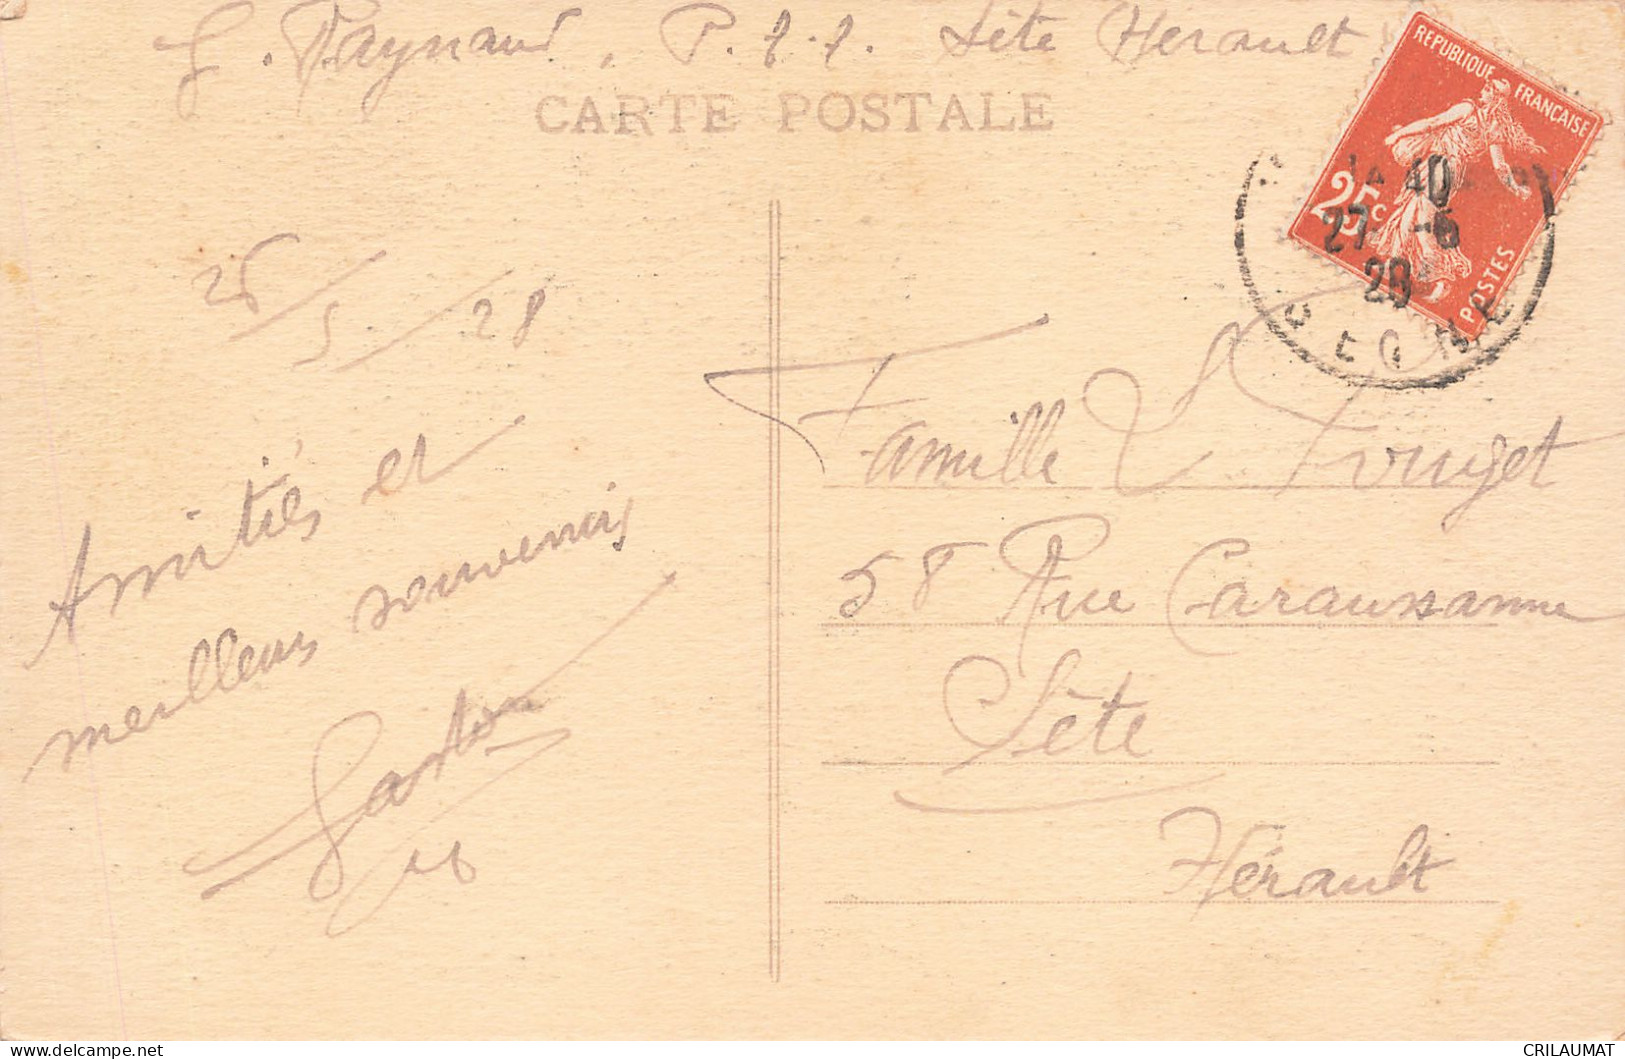 G. Raynaud, P.T.T. Sète Hérault
CARTE POSTALE
REPUBLIQUE FRANÇAISE
25c
POSTES
10
27 -5
28
26/5/28
Amitiés et
meilleurs souvenirs
Gaston
Famille Fouget
58 Rue Caraussanne
Sète
Hérault
CRILAUMAT